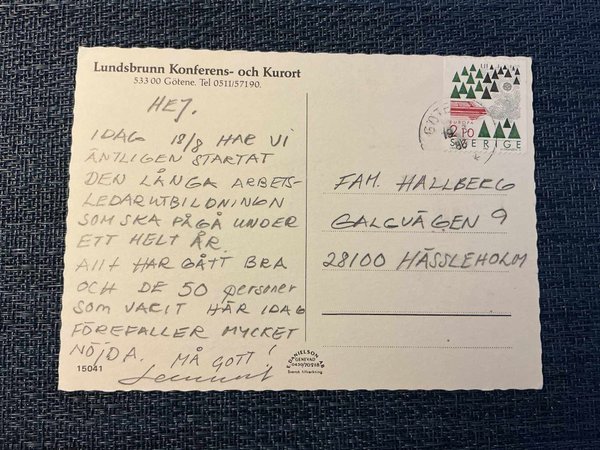 Lundsbrunn Konferens- och Kurort
533 00 Götene. Tel 0511/57190.
HEJ.
IDAG 18/8 HAR VI
ÄNTLIGEN STARTAT
DEN LÅNGA ARBETS-
LEDARUTBILDNINGN
SOM SKA PÅGÅ UNDER
ETT HELT ÅR.
Allt HAR GÅTT BRA
OCH DE 50 personer
SOM VARIT HÄR IDAG
FÖREFALLER MYCKET
NÖJDA. MÅ GOTT!
Lennart
15041
E. DANIELSON AB
GENEVAD
Svensk tillverkning
EUROPA
2.10
SVERIGE
FAM. HALLBERG
GALGVÄGEN 9
28100 HÄSSLEHOLM